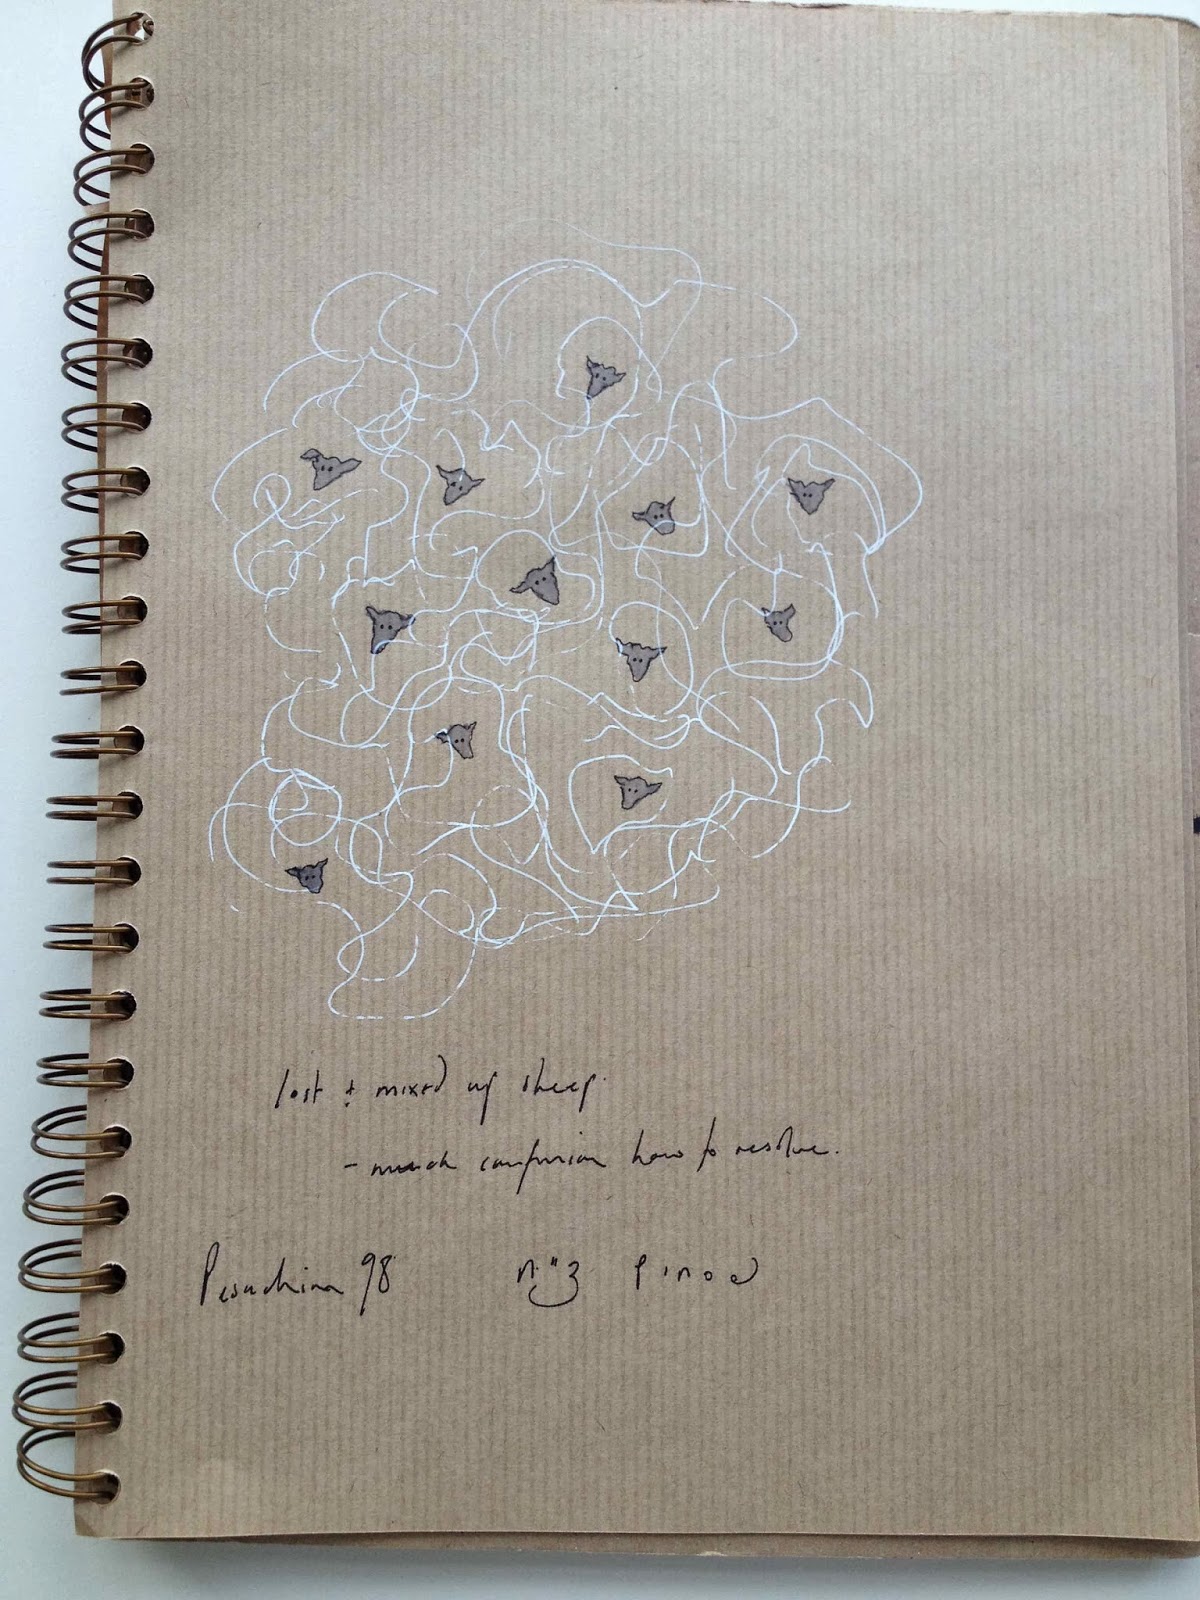 lost + mixed up sheep.
- much confusion how to resolve.
Pesachim 98